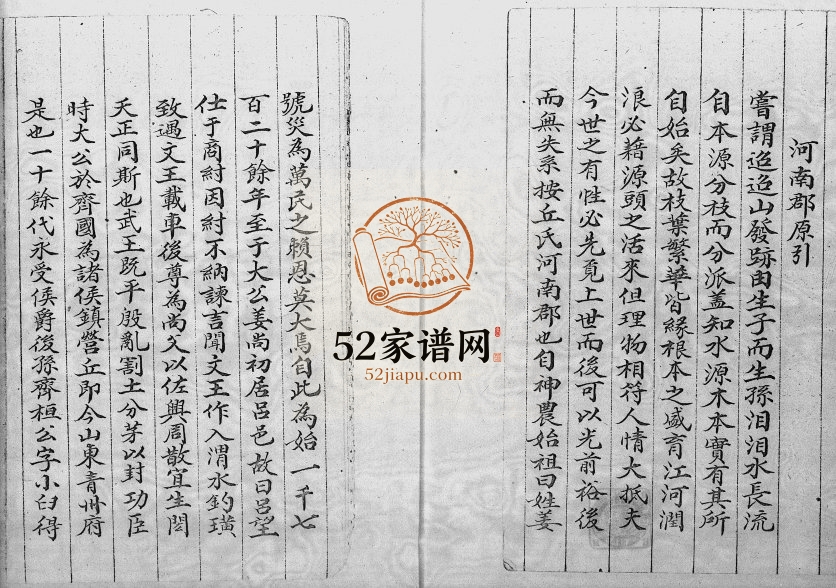 河南郡原引
嘗謂迢迢山發跡由生子而生孫汨汨水長流
自本源分枝而分派盖知水源木本實有其所
自始矣故枝葉繁華皆緣根本之盛育江河潤
浪必藉源頭之活來但理物相符人情大抵夫
今世之有性必先覓上世而後可以光前裕後
而無失系按丘氏河南郡也自神農始祖曰姓姜
號炎為萬民之賴恩莫大焉自此為始一千七
百二十餘年至于大公姜尚初居呂邑故曰呂望
仕于商紂因紂不納諫言聞文王作入渭水釣璜
致遇文王載車後尊為尚父以佐興周散宜生閎
夭正同斯也武王既平殷亂割土分茅以封功臣
時大公於齊國為諸侯鎮營丘即今山東青州府
是也一十餘代永受侯爵後孫齊桓公字小臼得
52家谱网
52jiapu.com